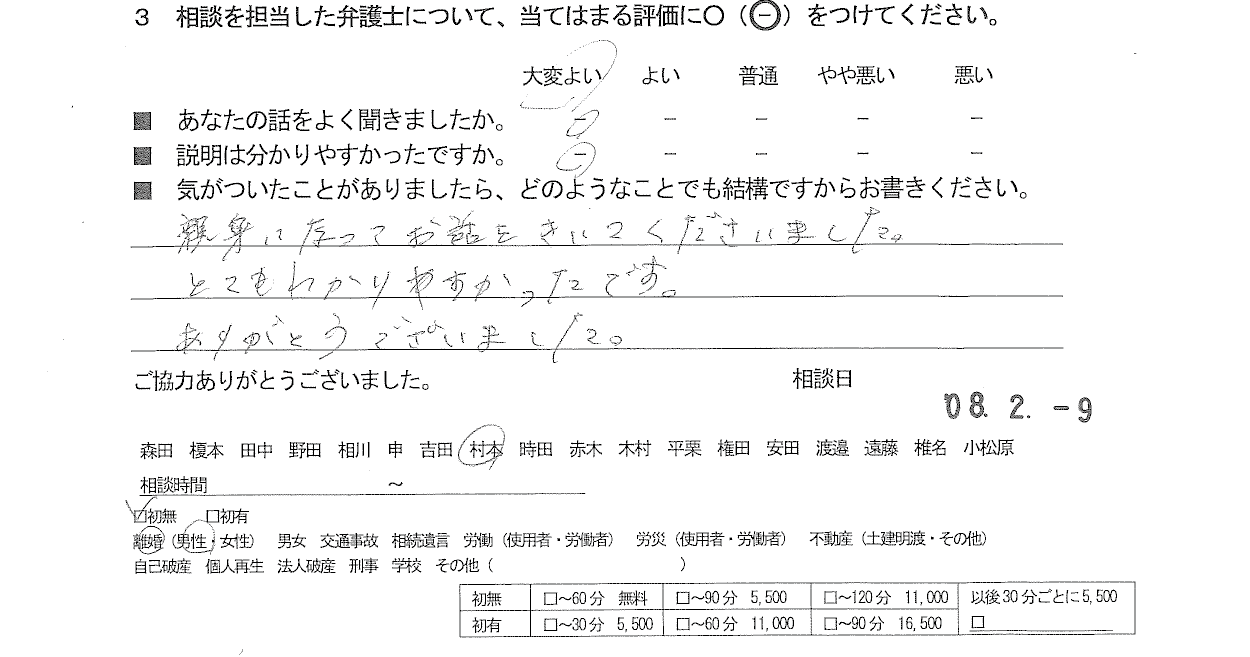 3 相談を担当した弁護士について、当てはまる評価に○(㊀)をつけてください。
大変よい よい 普通 やや悪い 悪い
■ あなたの話をよく聞きましたか。 - - - - -
■ 説明は分かりやすかったですか。 - - - - -
■ 気がついたことがありましたら、どのようなことでも結構ですからお書きください。
親身になってお話をきいてくださいました。
とてもわかりやすかったです。
ありがとうございました。
ご協力ありがとうございました。 相談日
'08. 2. -9
森田 榎本 田中 野田 相川 申 吉田 村本 時田 赤木 木村 平栗 権田 安田 渡邉 遠藤 椎名 小松原
相談時間 ~
☑初無 □初有
離婚(男性・女性) 男女 交通事故 相続遺言 労働(使用者・労働者) 労災(使用者・労働者) 不動産(土建明渡・その他)
自己破産 個人再生 法人破産 刑事 学校 その他( )
初無 □~60分 無料 □~90分 5,500 □~120分 11,000 以後30分ごとに5,500
初有 □~30分 5,500 □~60分 11,000 □~90分 16,500 □